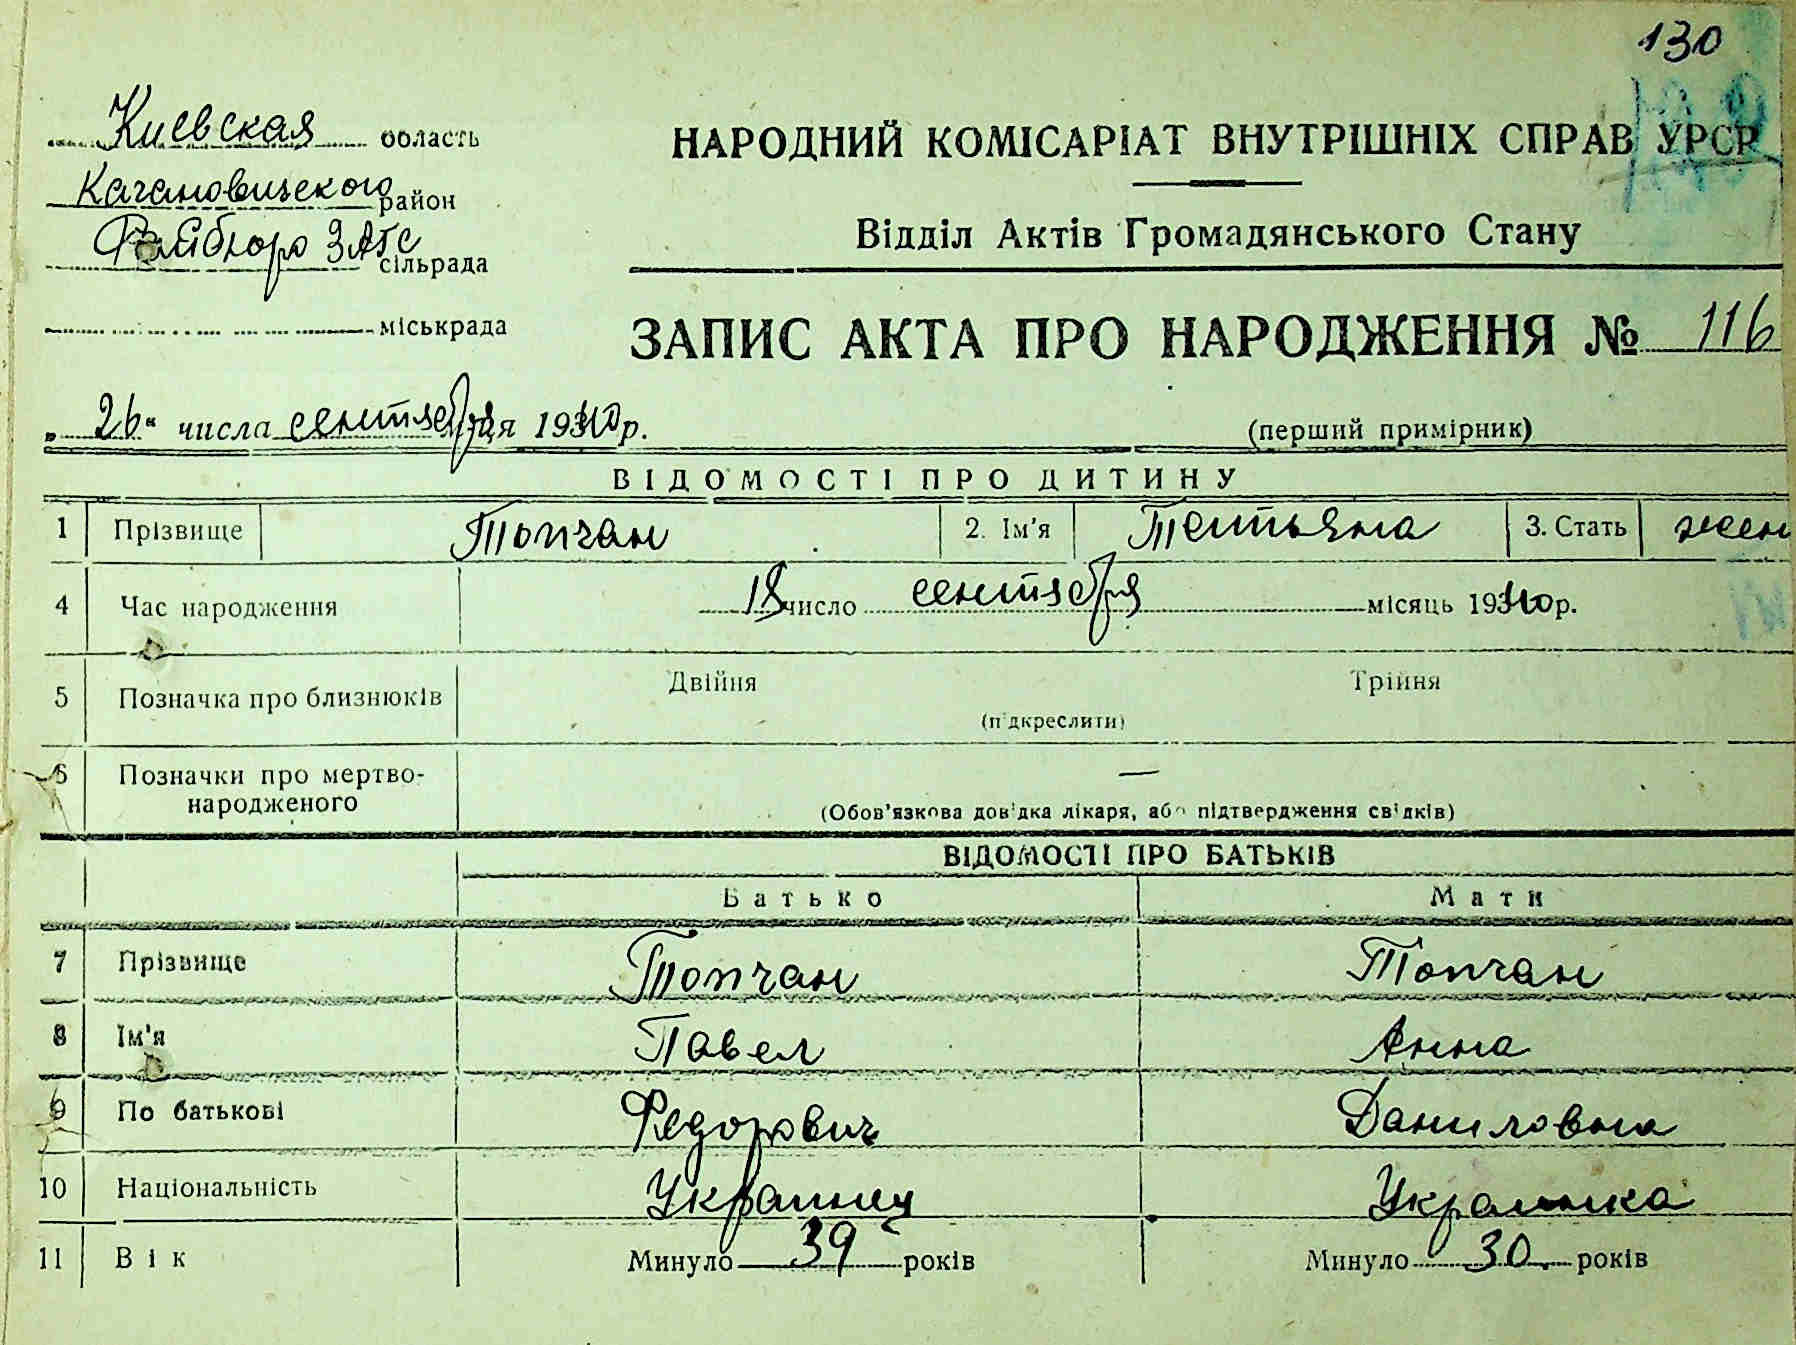 130
Киевская область
НАРОДНИЙ КОМІСАРІАТ ВНУТРІШНІХ СПРАВ УРСР
Кагановического район
Відділ Актів Громадянського Стану
Райбюро ЗАГС сільрада
міськрада
ЗАПИС АКТА ПРО НАРОДЖЕННЯ № 116
„26“ числа сентября 1940 р.
(перший примірник)
ВІДОМОСТІ ПРО ДИТИНУ
1 Прізвище Топчан 2. Ім'я Татьяна 3. Стать жен
4 Час народження 18 число сентября місяць 1940 р.
5 Позначка про близнюків Двійня Трійня
(підкреслити)
6 Позначки про мертво-
народженого —
(Обов'язкова довідка лікаря, або підтвердження свідків)
ВІДОМОСТІ ПРО БАТЬКІВ
Батько Мати
7 Прізвище Топчан Топчан
8 Ім'я Павел Анна
9 По батькові Федорович Даниловна
10 Національність Украинец Украинка
11 Вік Минуло 39 років Минуло 30 років